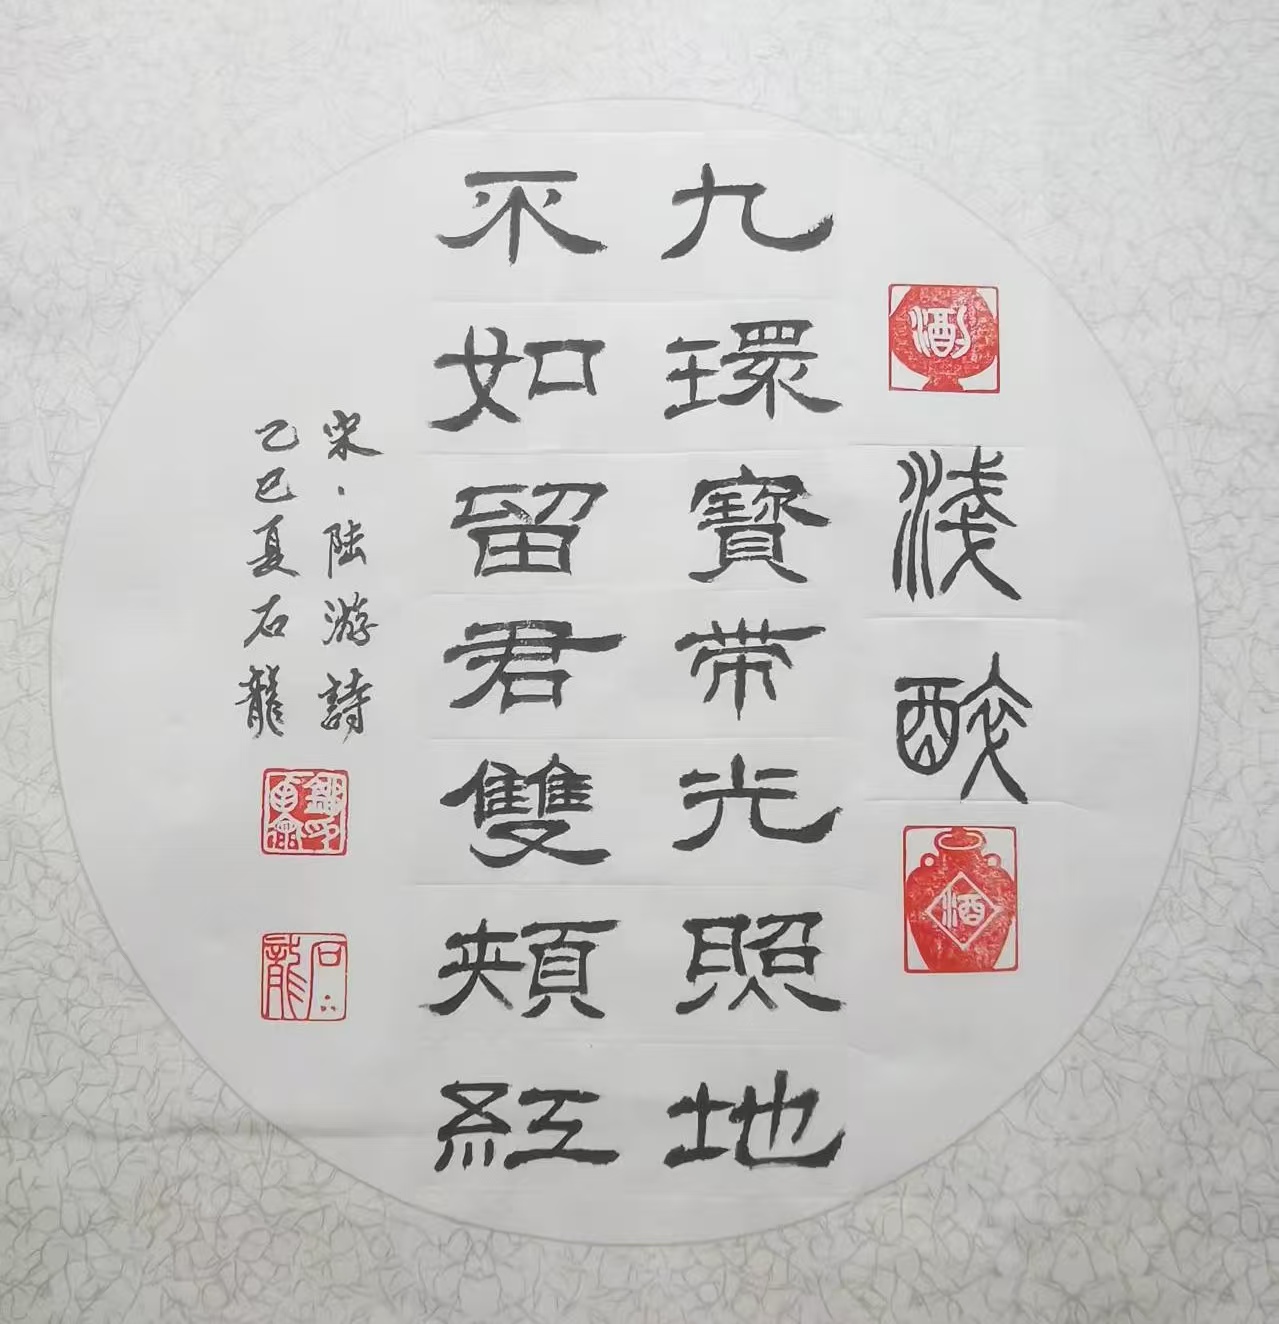 淺醉
酒
九環寶带光照地
不如留君雙頰紅
宋·陆游詩
乙巳夏石龍
石龍